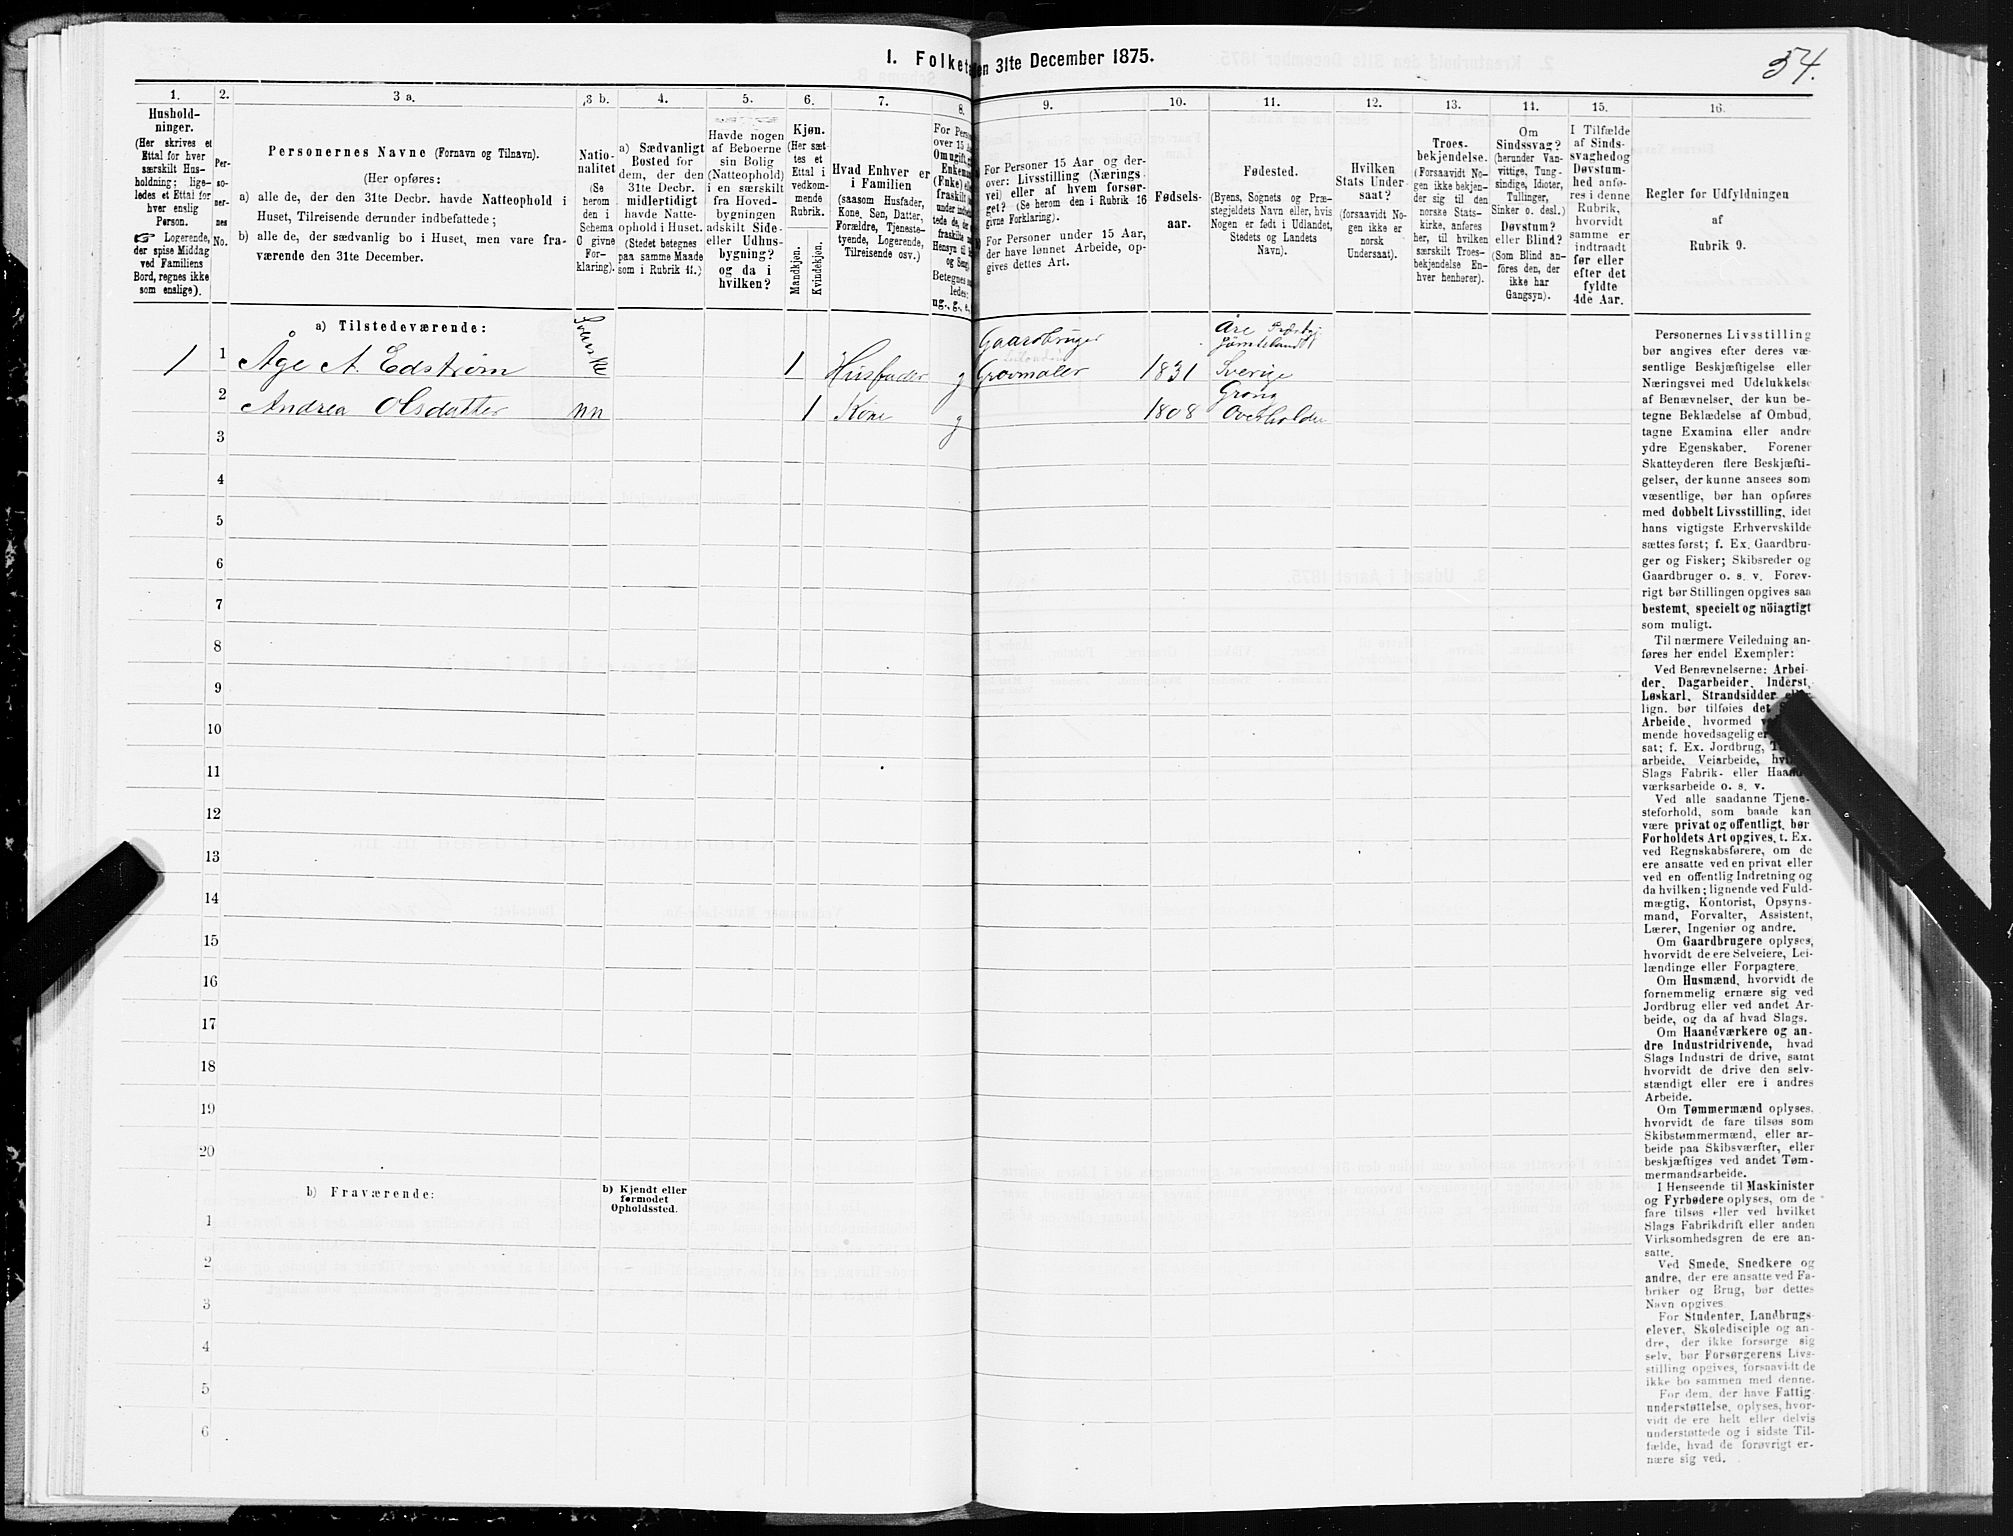 1. Folket
en 31te December 1875.
54.
1.
2.
3 a.
3 b.
4.
5.
6.
7.
8.
9.
10.
11.
12.
13.
14.
15.
16.
Hushold-
ninger.
(Her skrives et
Ettal for hver
særskilt Hus-
holdning; lige-
ledes et Ettal for
hver enslig
Person.
Logerende,
der spise Middag
ved Familiens
Bord, regnes ikke
som enslige).
Per-
so-
ner-
nes
No.
Personernes Navne (Fornavn og Tilnavn).
(Her opføres:
a) alle de, der den 31te Decbr. havde Natteophold i
Huset, Tilreisende derunder indbefattede;
b) alle de, der sædvanlig bo i Huset, men vare fra-
værende den 31te December.
Natio-
nalitet
(Se
herom
den i
Schema
C givne
For-
klaring).
a) Sædvanligt
Bosted for
dem, der den
31te Decbr.
midlertidigt
havde Natte-
ophold i Huset.
(Stedet betegnes
paa samme Maade
som i Rubrik 11.)
Havde nogen
af Beboerne
sin Bolig
(Natteophold)
i en særskilt
fra Hoved-
bygningen
adskilt Side-
eller Udhus-
bygning?
og da i
hvilken?
Kjøn.
(Her sæt-
tes et
Ettal i
vedkom-
mende
Rubrik.
Mandkjøn.
Kvindekjøn.
Hvad Enhver er
i Familien
(saasom Husfader,
Kone, Søn, Datter,
Forældre, Tjeneste-
tyende, Logerende,
Tilreisende osv.)
For Pers
over 15 A
Om ugift, g
Enkem
(Enke) el
fraskilt
Hensyn til
og Seng,
Betegnes s
ledes:
ug., g., e.,
For Personer 15 Aar og der-
over: Livsstilling (Nærings-
vei) eller af hvem forsør-
get? (Se herom den i Rubrik 16
givne Forklaring).
For Personer under 15 Aar,
der have lønnet Arbeide, op-
gives dettes Art.
Fødsels-
aar.
Fødested.
(Byens, Sognets og Præ-
stegjeldets Navn eller, hvis
Nogen er født i Udlandet,
Stedets og Landets
Navn).
Hvilken
Stats Under-
saat?
(forsaavidt No-
gen ikke er
norsk
Undersaat).
Troes-
bekjendelse.
(Forsaavidt No-
gen ikke bekjen-
der sig til den
norske Stats-
kirke, anføres
her, til hvilken
særskilt Troes-
bekjendelse En-
hver henhører).
Om
Sindssvag?
(herunder Van-
vittige, Tung-
sindige, Idioter,
Tullinger,
Sinker o. desl.)
Døvstum?
eller Blind?
(Som Blind an-
føres den, der
ikke har
Gangsyn).
I Tilfælde
af Sinds-
svaghedog
Døvstum-
hed anfø-
res i denne
Rubrik,
hvorvidt
samme er
indtraadt
før eller
efter det
fyldte
4de Aar.
Regler for Udfyldningen
af
Rubrik 9.
a) Tilstedeværende:
Svenske
Gaardbruger
Åre Præstgj
Jämtelandet
1 1 Åge A. Edstrøm 1 Husfader g Grovmaler 1831 Sverige
Grong
2 Andrea Olsdatter nn 1 Kone g 1808 Overhalden
3
4
5
6
7
8
9
10
11
12
13
14
15
16
17
18
19
20
b) Fraværende:
b) Kjendt eller
formodet
Opholdssted.
1
2
3
4
5
6
Personernes Livsstilling
bør angives efter deres væ-
sentlige Beskjæftigelse eller
Næringsvei med Udelukkelse
af Benævnelser, der kun be-
tegne Beklædelse af Ombud,
tagne Examina eller andre
ydre Egenskaber. Forener
Skatteyderen flere Beskjæfti-
gelser, der kunne ansees som
væsentlige, bør han opføres
med dobbelt Livsstilling, idet
hans vigtigste Erhvervskilde
sættes først; f. Ex. Gaardbru-
ger og Fisker; Skibsreder og
Gaardbruger o. s. v. Forøv-
rigt bør Stillingen opgives saa
bestemt, specielt og nöiagtigt
som muligt.
Til nærmere Veiledning an-
føres her endel Exempler:
Ved Benævnelserne: Arbei-
der, Dagarbeider, Inderst,
Løskarl, Strandsidder eller
lign. bør tilføies det
Arbeide, hvormed
mende hovedsagelig er
sat; f. Ex. Jordbrug,
arbeide, Veiarbeide,
Slags Fabrik- eller Haand-
værksarbeide o. s. v.
Ved alle saadanne Tjene-
steforhold, som baade kan
være privat og offentligt, bør
Forholdets Art opgives, t. Ex.
ved Regnskabsførere, om de
ere ansatte ved en privat eller
ved en offentlig Indretning og
da hvilken; lignende ved Fuld-
mægtig, Kontorist, Opsyns-
mand, Forvalter, Assistent,
Lærer, Ingeniør og andre.
Om Gaardbrugere oplyses,
hvorvidt de ere Selveiere, Lei-
lændinge eller Forpagtere.
Om Husmænd, hvorvidt de
fornemmelig ernære sig ved
Jordbrug eller ved andet Ar-
beide, og da af hvad Slags.
Om Haandværkere og an-
dre Industridrivende, hvad
Slags Industri de drive, samt
hvorvidt de drive den selv-
stændigt eller ere i andres
Arbeide.
Om Tømmermænd oplyses,
hvorvidt de fare tilsøs som
Skibstømmermænd, eller ar-
beide paa Skibsværfter, eller
beskjæftiges ved andet Tøm-
mermandsarbeide.
I Henseende til Maskinister
og Fyrbødere oplyses, om de
fare tilsøs eller ved hvilket
Slags Fabrikdrift eller anden
Virksomhedsgren de ere an-
satte.
Ved Smede, Snedkere og
andre, der ere ansatte ved Fa-
briker og Brug, bør dettes
Navn opgives.
For Studenter, Landbrugs-
elever, Skoledisciple og an-
dre, der ikke forsørge sig
selv, bør Forsørgerens Livs-
stilling opgives, forsaavidt de
ikke bo sammen med denne.
For dem, der have Fattig-
understøttelse, oplyses, hvor-
vidt de ere helt eller delvis
understøttede og i sidste Til-
fælde, hvad de forøvrigt er-
nære sig ved.